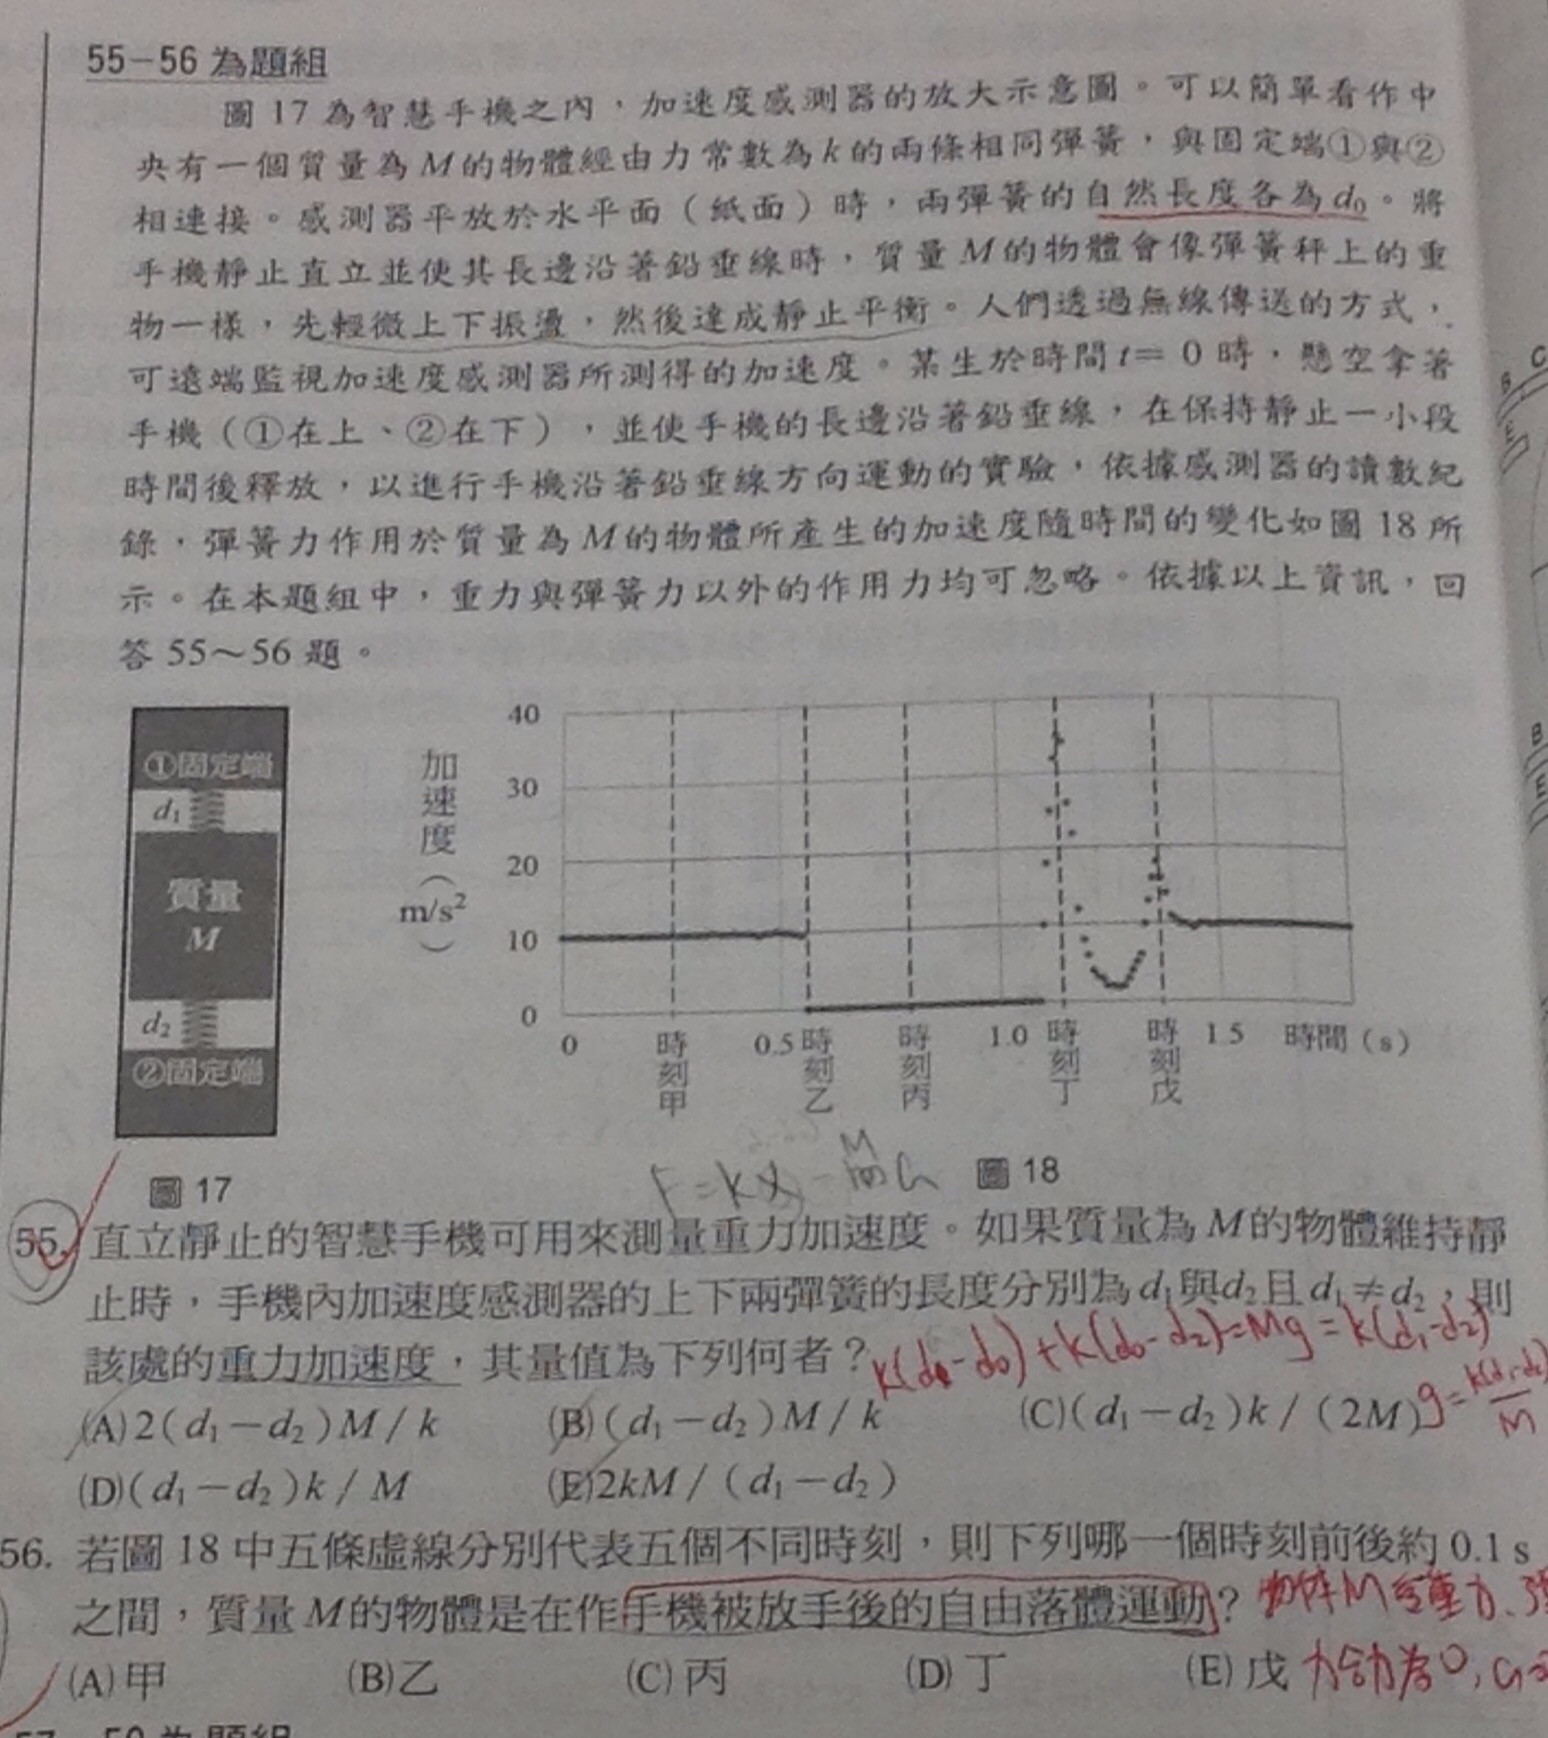 55－56 為題組
圖 17 為智慧手機之內，加速度感測器的放大示意圖。可以簡單看作中
央有一個質量為 M 的物體經由力常數為 k 的兩條相同彈簧，與固定端①與②
相連接。感測器平放於水平面（紙面）時，兩彈簧的自然長度各為 d₀。將
手機靜止直立並使其長邊沿著鉛垂線時，質量 M 的物體會像彈簧秤上的重
物一樣，先輕微上下振盪，然後達成靜止平衡。人們透過無線傳送的方式，
可遠端監視加速度感測器所測得的加速度。某生於時間 t＝ 0 時，懸空拿著
手機（①在上、②在下），並使手機的長邊沿著鉛垂線，在保持靜止一小段
時間後釋放，以進行手機沿著鉛垂線方向運動的實驗，依據感測器的讀數紀
錄，彈簧力作用於質量為 M 的物體所產生的加速度隨時間的變化如圖 18 所
示。在本題組中，重力與彈簧力以外的作用力均可忽略。依據以上資訊，回
答 55～56 題。
①固定端
d₁
質量
M
d₂
②固定端
圖 17
加速度（m/s²）
40
30
20
10
0
0 時刻甲 0.5 時刻乙 時刻丙 1.0 時刻丁 時刻戊 1.5 時間（s）
圖 18
55. 直立靜止的智慧手機可用來測量重力加速度。如果質量為 M 的物體維持靜
止時，手機內加速度感測器的上下兩彈簧的長度分別為 d₁與d₂且 d₁≠d₂，則
該處的重力加速度，其量值為下列何者？
k(d₁-d₀)+k(d₀-d₂)=Mg=k(d₁-d₂)
(A)2(d₁－d₂)M / k (B)(d₁－d₂)M / k (C)(d₁－d₂)k /（2M）
(D)(d₁－d₂)k / M (E)2kM /（d₁－d₂）
56. 若圖 18 中五條虛線分別代表五個不同時刻，則下列哪一個時刻前後約 0.1 s
之間，質量 M 的物體是在作手機被放手後的自由落體運動？
(A)甲 (B)乙 (C)丙 (D)丁 (E)戊